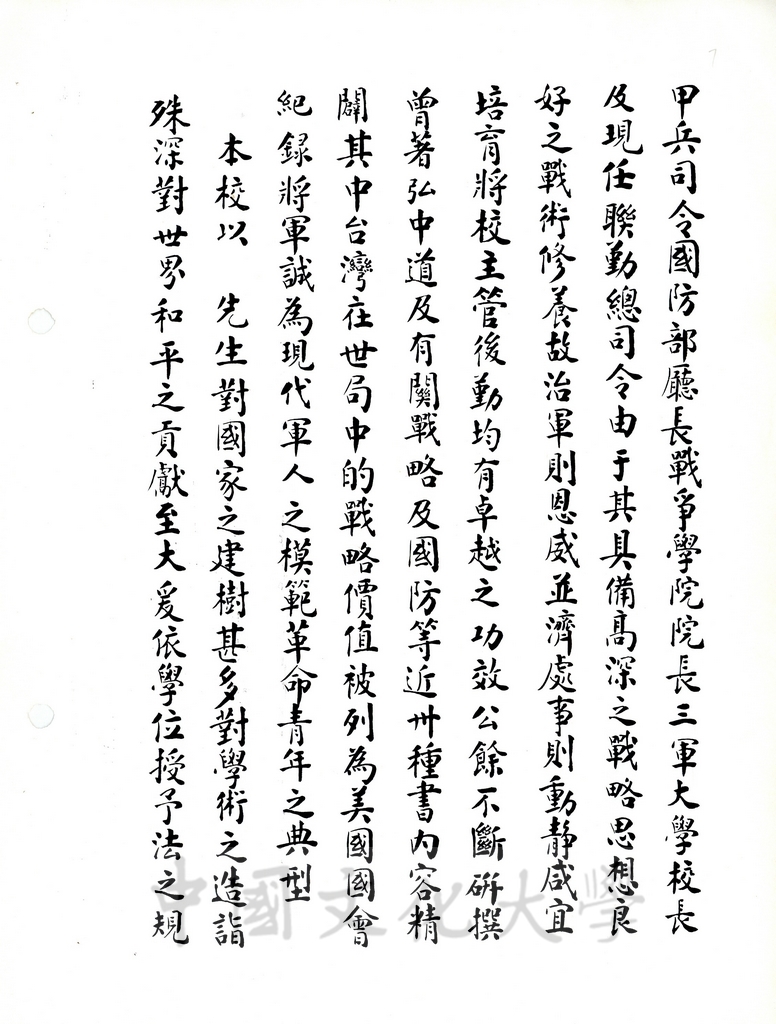 甲兵司令國防部廳長戰爭學院院長三軍大學校長
及現任聯勤總司令由于其具備高深之戰略思想良
好之戰術修養故治軍則恩威並濟處事則動靜咸宜
培育將校主管後勤均有卓越之功效公餘不斷研撰
曾著弘中道及有關戰略及國防等近卅種書內容精
闢其中台灣在世局中的戰略價值被列為美國國會
紀錄將軍誠為現代軍人之模範革命青年之典型
本校以　先生對國家之建樹甚多對學術之造詣
殊深對世界和平之貢獻至大爰依學位授予法之規
中國文化大學
7